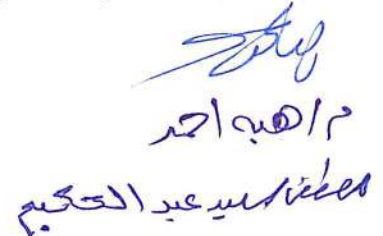 م/هبه احمد
مصطفى سيد عبد الحكيم